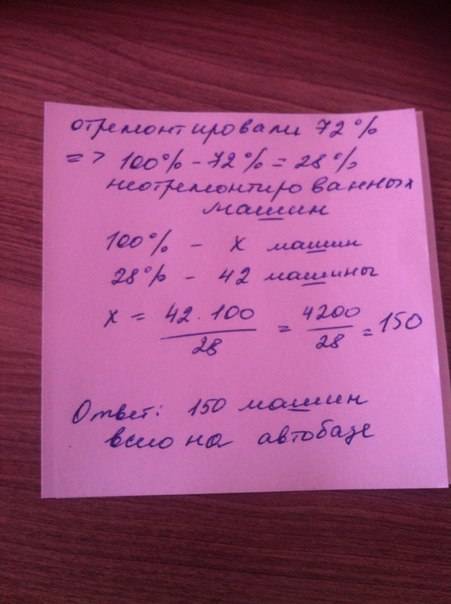 отремонтировали 72%
=> 100% - 72% = 28%
неотремонтированных
машин
100% - х машин
28% - 42 машины
х = 42.100/28 = 4200/28 = 150
Ответ: 150 машин
было на автобазе